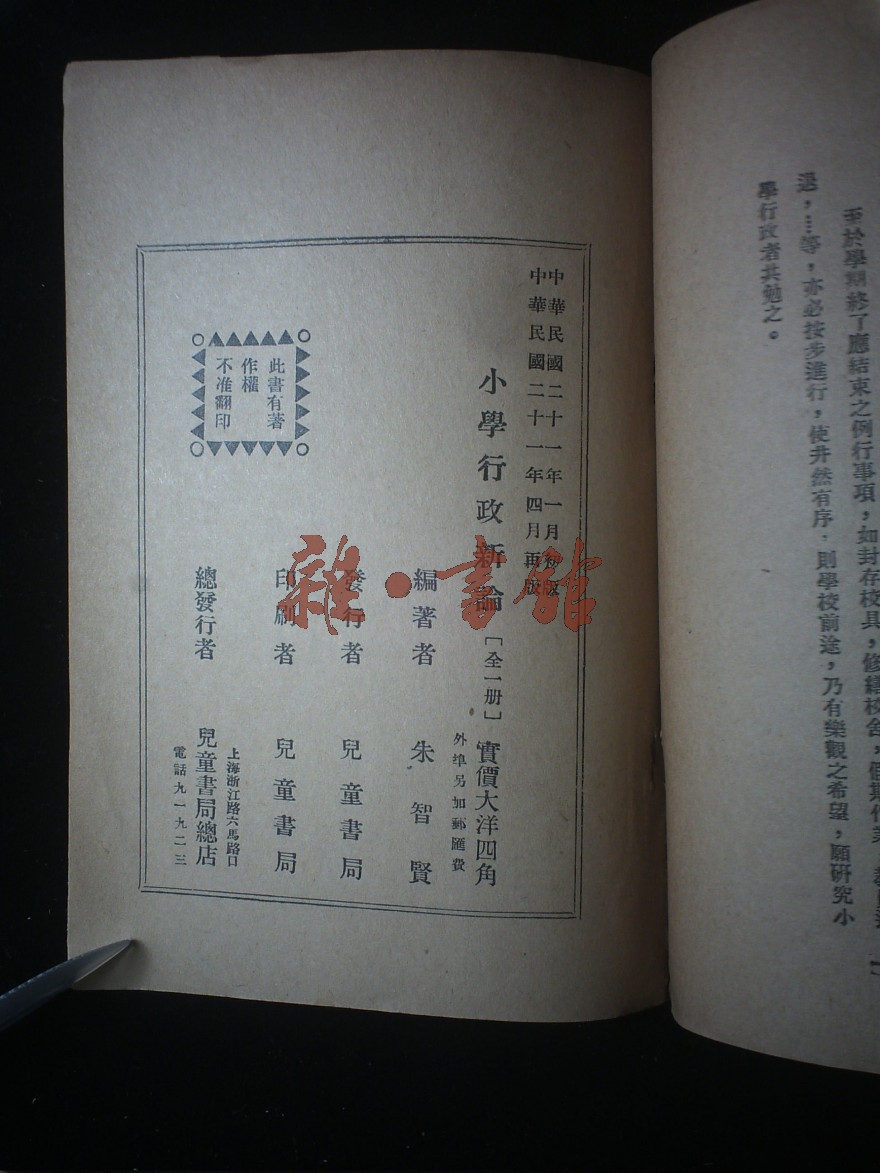 至於學期終了應結束之例行事項,如封存校具,修繕校舍,假期作業
退,……等,亦必按步進行,使井然有序,則學校前途,乃有樂觀之希望,願研究小
學行政者共勉之。
中華民國二十一年一月初版
中華民國二十一年四月再版
小學行政新論〔全一册〕實價大洋四角
外埠另加郵匯費
編著者 朱智賢
發行者 兒童書局
印刷者 兒童書局
總發行者 上海浙江路六馬路口
兒童書局總店
電話九一九二三
此書有著
作權
不准翻印
雜·書館